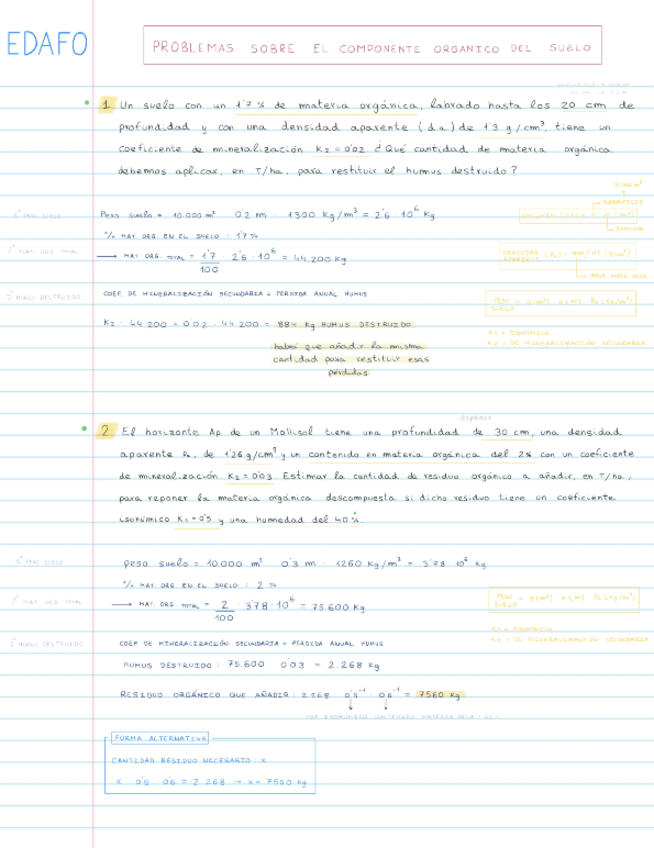 EDAFO
PROBLEMAS SOBRE EL COMPONENTE ORGANICO DEL SUELO
1. Un suelo con un 1'7 % de materia orgánica, labrado hasta los 20 cm de
profundidad y con una densidad aparente (da) de 1'3 g/cm³, tiene un
coeficiente de mineralización K2 = 0'02. ¿Qué cantidad de materia orgánica
debemos aplicar, en T/ha, para restituir el humus destruido?
10.000 m²
SUPERFICIE
1º PESO SUELO
Peso suelo = 10.000 m² 0'2 m · 1300 kg/m³ = 2'6 · 10⁶ kg
ESPESOR
% MAT. ORG. EN EL SUELO : 1'7 %
2º MAT. ORG. TOTAL
→ MAT. ORG. TOTAL = 1'7 / 100 · 2'6 · 10⁶ = 44.200 kg
DENSIDAD APARENTE
MASA SUELO SECO
3º HUMUS DESTRUIDO
COEF. DE MINERALIZACIÓN SECUNDARIA = PÉRDIDA ANUAL HUMUS
PESO SUELO = S(m²) · e(m) · Pa(kg/m³)
K2 · 44.200 = 0'02 · 44.200 = 884 kg HUMUS DESTRUIDO
K1 = ISOHÚMICO
K2 = DE MINERALIZACIÓN SECUNDARIA
habrá que añadir la misma
cantidad para restituir esas
pérdidas
espesor
2. El horizonte Ap de un Mollisol tiene una profundidad de 30 cm, una densidad
aparente Pa, de 1'26 g/cm³ y un contenido en materia orgánica del 2% con un coeficiente
de mineralización K2 = 0'03. Estimar la cantidad de residuo orgánico a añadir, en T/ha,
para reponer la materia orgánica descompuesta si dicho residuo tiene un coeficiente
isohúmico K1 = 0'5 y una humedad del 40%.
1º PESO SUELO
peso suelo = 10.000 m² 0'3 m · 1260 kg/m³ = 3'78 · 10⁶ kg
% MAT. ORG. EN EL SUELO : 2 %
2º MAT. ORG. TOTAL
→ MAT. ORG. TOTAL = 2 / 100 3'78 · 10⁶ = 75.600 kg
PESO SUELO = S(m²) e(m) Pa(kg/m³)
K1 = ISOHÚMICO
K2 = DE MINERALIZACIÓN SECUNDARIA
3º HUMUS DESTRUIDO
COEF. DE MINERALIZACIÓN SECUNDARIA = PÉRDIDA ANUAL HUMUS
HUMUS DESTRUIDO : 75.600 0'03 = 2.268 kg
RESIDUO ORGÁNICO QUE AÑADIR : 2.268 0'5⁻¹ · 0'6⁻¹ = 7560 kg
FORMA ALTERNATIVA
CANTIDAD RESIDUO NECESARIO : X
X · 0'5 · 0'6 = 2.268 → X = 7560 kg